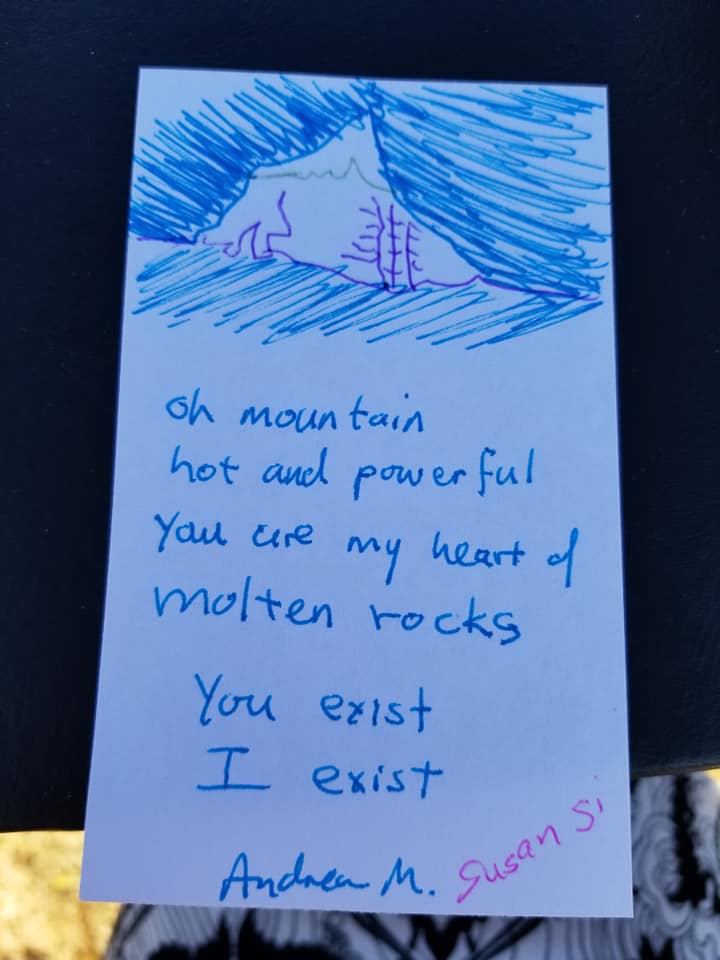 oh mountain
hot and powerful
You are my heart of
molten rocks
You exist
I exist
Andrea M. Susan Si